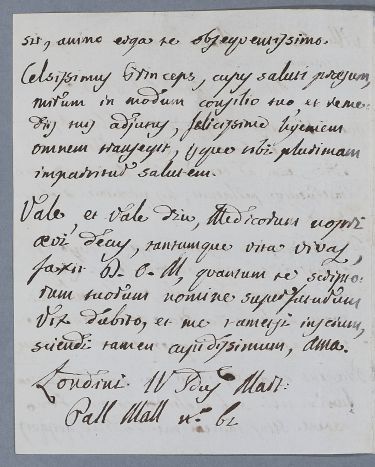 sis, animo erga te obsequentissimo.
Celsissimus Princeps, cujus saluti præsum,
mirum in modum consilio tuo, et reme
diis tuis adjutus, felicissime hyemem
omnem transegit, isque tibi plurimam
impartitur salutem.
Vale, et Vale diu, Medicorum nostri
ævi decus, tantumque vita vivas,
faxit D. O. M, quantum te scripto
rum tuorum nomine superfuturum
vix dubito, et me tametsi inscium,
sciendi tamen cupidissimum, ama.
Londini IV Idus Mart:
Pall Mall n.° 62